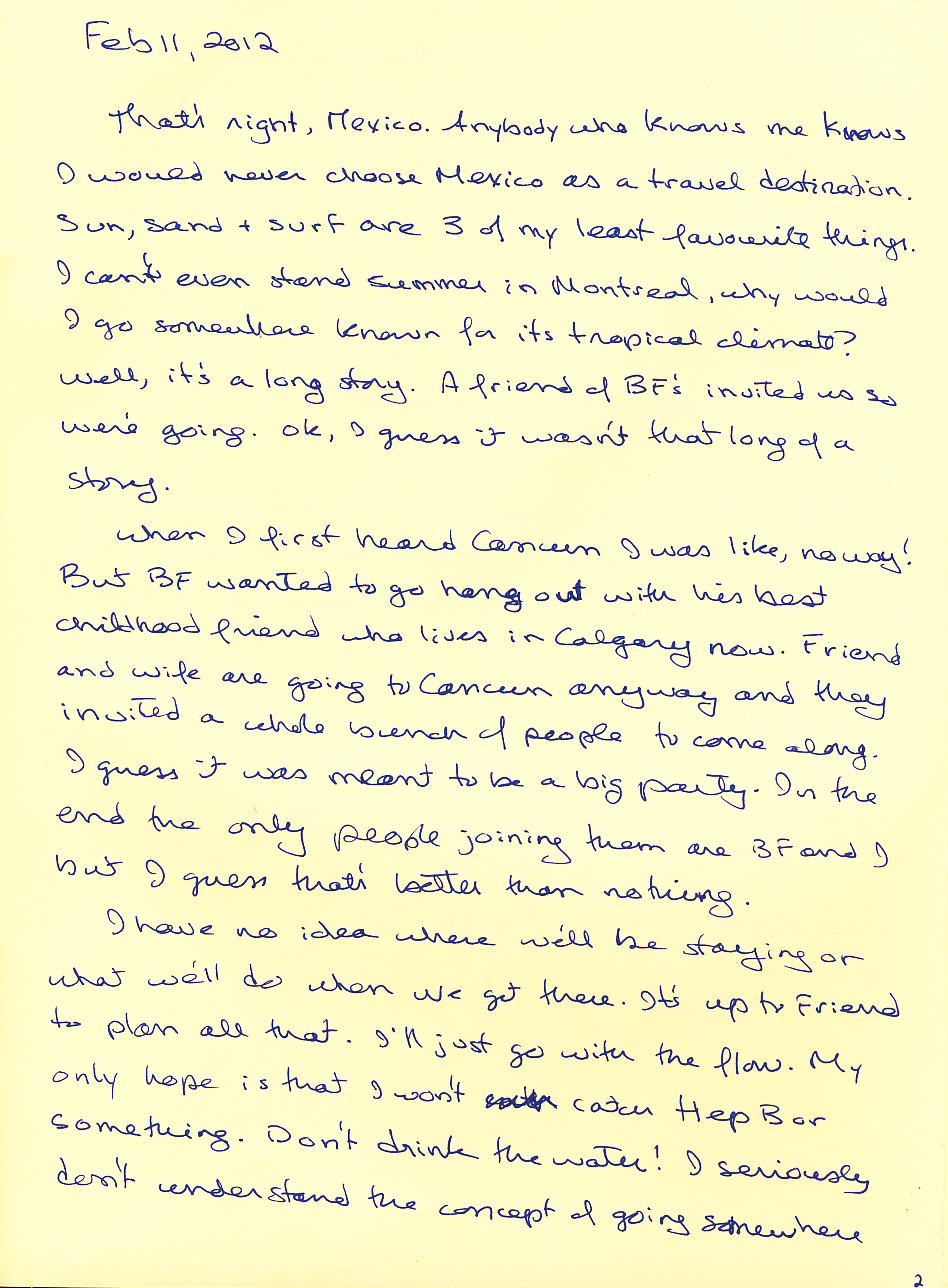 Feb 11, 2012
That's right, Mexico. Anybody who knows me knows
I would never choose Mexico as a travel destination.
Sun, sand + surf are 3 of my least favourite things.
I can't even stand summer in Montreal, why would
I go somewhere known for its tropical climate?
Well, it's a long story. A friend of BF's invited us so
we're going. Ok, I guess it wasn't that long of a
story.
When I first heard Cancun I was like, no way!
But BF wanted to go hang out with his best
childhood friend who lives in Calgary now. Friend
and wife are going to Cancun anyway and they
invited a whole bunch of people to come along.
I guess it was meant to be a big party. In the
end the only people joining them are BF and I
but I guess that's better than nothing.
I have no idea where we'll be staying or
what we'll do when we get there. It's up to Friend
to plan all that. I'll just go with the flow. My
only hope is that I won't catch Hep B or
something. Don't drink the water! I seriously
don't understand the concept of going somewhere
2